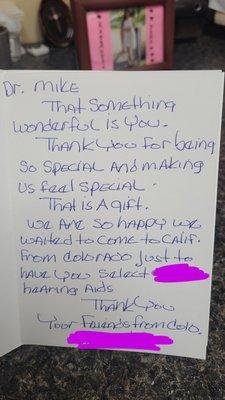 Dr. Mike
That Something
wonderful is You.
Thank You For being
So Special and making
us feel special.
That is A gift.
We Are So happy we
waited to come to Calif.
From Colorado Just to
have You Select
hearing Aids
Thank You
Your Friends from Colo.